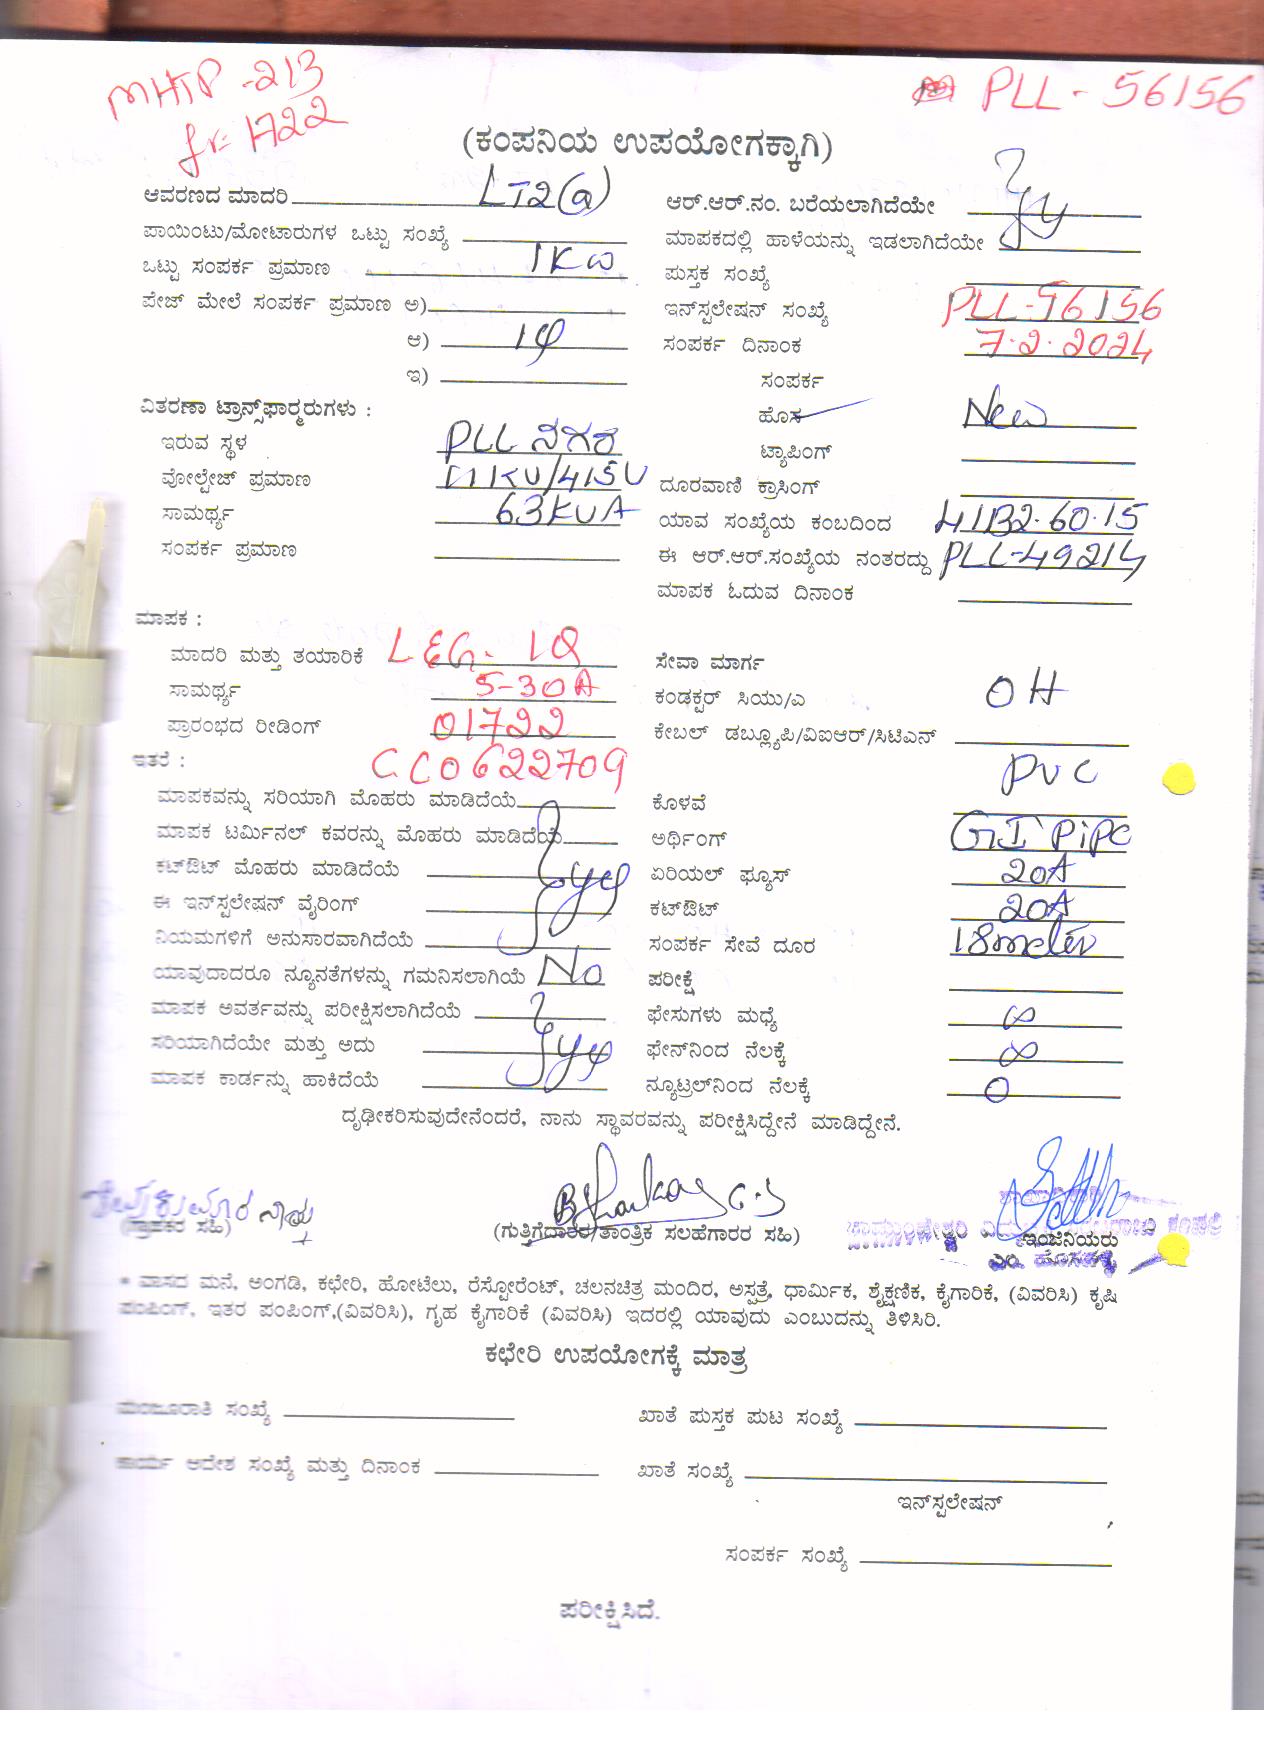 MHTP-213
fr: 1722
PLL-56156
(ಕಂಪನಿಯ ಉಪಯೋಗಕ್ಕಾಗಿ)
ಆವರಣದ ಮಾದರಿ LT2(a)
ಪಾಯಿಂಟು/ಮೋಟಾರುಗಳ ಒಟ್ಟು ಸಂಖ್ಯೆ
ಒಟ್ಟು ಸಂಪರ್ಕ ಪ್ರಮಾಣ 1KW
ಪೇಜ್ ಮೇಲೆ ಸಂಪರ್ಕ ಪ್ರಮಾಣ ಅ)
ಆ) 1φ
ಇ)
ವಿತರಣಾ ಟ್ರಾನ್ಸ್‌ಫಾರ್ಮರುಗಳು :
ಇರುವ ಸ್ಥಳ PLL ನಗರ
ವೋಲ್ಟೇಜ್ ಪ್ರಮಾಣ 11KV/415V
ಸಾಮರ್ಥ್ಯ 63KVA
ಸಂಪರ್ಕ ಪ್ರಮಾಣ
ಮಾಪಕ :
ಮಾದರಿ ಮತ್ತು ತಯಾರಿಕೆ L&G- 1Q
ಸಾಮರ್ಥ್ಯ 5-30A
ಪ್ರಾರಂಭದ ರೀಡಿಂಗ್ 01722
ಇತರೆ : CC0622709
ಮಾಪಕವನ್ನು ಸರಿಯಾಗಿ ಮೊಹರು ಮಾಡಿದೆಯೆ
ಮಾಪಕ ಟರ್ಮಿನಲ್ ಕವರನ್ನು ಮೊಹರು ಮಾಡಿದೆಯೆ
ಕಟ್‌ಔಟ್ ಮೊಹರು ಮಾಡಿದೆಯೆ
ಈ ಇನ್‌ಸ್ಟಲೇಷನ್ ವೈರಿಂಗ್
ನಿಯಮಗಳಿಗೆ ಅನುಸಾರವಾಗಿದೆಯೆ
ಯಾವುದಾದರೂ ನ್ಯೂನತೆಗಳನ್ನು ಗಮನಿಸಲಾಗಿಯೆ No
ಮಾಪಕ ಅವರ್ತವನ್ನು ಪರೀಕ್ಷಿಸಲಾಗಿದೆಯೆ
ಸರಿಯಾಗಿದೆಯೇ ಮತ್ತು ಅದು
ಮಾಪಕ ಕಾರ್ಡನ್ನು ಹಾಕಿದೆಯೆ
ಆರ್.ಆರ್.ನಂ. ಬರೆಯಲಾಗಿದೆಯೇ
ಮಾಪಕದಲ್ಲಿ ಹಾಳೆಯನ್ನು ಇಡಲಾಗಿದೆಯೇ
ಪುಸ್ತಕ ಸಂಖ್ಯೆ
ಇನ್‌ಸ್ಟಲೇಷನ್ ಸಂಖ್ಯೆ PLL-56156
ಸಂಪರ್ಕ ದಿನಾಂಕ 7.2.2024
ಸಂಪರ್ಕ
ಹೊಸ New
ಟ್ಯಾಪಿಂಗ್
ದೂರವಾಣಿ ಕ್ರಾಸಿಂಗ್
ಯಾವ ಸಂಖ್ಯೆಯ ಕಂಬದಿಂದ 41B2.60.15
ಈ ಆರ್.ಆರ್.ಸಂಖ್ಯೆಯ ನಂತರದ್ದು PLL-49214
ಮಾಪಕ ಓದುವ ದಿನಾಂಕ
ಸೇವಾ ಮಾರ್ಗ
ಕಂಡಕ್ಟರ್ ಸಿಯು/ಎ OH
ಕೇಬಲ್ ಡಬ್ಲ್ಯೂಪಿ/ವಿಐಆರ್/ಸಿಟಿಎನ್
ಕೊಳವೆ PVC
ಅರ್ಥಿಂಗ್ GI PiPe
ಏರಿಯಲ್ ಫ್ಯೂಸ್ 20A
ಕಟ್‌ಔಟ್ 20A
ಸಂಪರ್ಕ ಸೇವೆ ದೂರ 18meter
ಪರೀಕ್ಷೆ
ಫೇಸುಗಳು ಮಧ್ಯೆ ∞
ಫೇನ್‌ನಿಂದ ನೆಲಕ್ಕೆ ∞
ನ್ಯೂಟ್ರಲ್‌ನಿಂದ ನೆಲಕ್ಕೆ 0
ದೃಢೀಕರಿಸುವುದೇನೆಂದರೆ, ನಾನು ಸ್ಥಾವರವನ್ನು ಪರೀಕ್ಷಿಸಿದ್ದೇನೆ ಮಾಡಿದ್ದೇನೆ.
(ಗ್ರಾಹಕರ ಸಹಿ)
(ಗುತ್ತಿಗೆದಾರರ/ತಾಂತ್ರಿಕ ಸಲಹೆಗಾರರ ಸಹಿ)
ಇಂಜಿನಿಯರು
* ವಾಸದ ಮನೆ, ಅಂಗಡಿ, ಕಛೇರಿ, ಹೋಟೆಲು, ರೆಸ್ಟೋರೆಂಟ್, ಚಲನಚಿತ್ರ ಮಂದಿರ, ಅಸ್ಪತ್ರೆ, ಧಾರ್ಮಿಕ, ಶೈಕ್ಷಣಿಕ, ಕೈಗಾರಿಕೆ, (ವಿವರಿಸಿ) ಕೃಷಿ
ಪಂಪಿಂಗ್, ಇತರ ಪಂಪಿಂಗ್,(ವಿವರಿಸಿ), ಗೃಹ ಕೈಗಾರಿಕೆ (ವಿವರಿಸಿ) ಇದರಲ್ಲಿ ಯಾವುದು ಎಂಬುದನ್ನು ತಿಳಿಸಿರಿ.
ಕಛೇರಿ ಉಪಯೋಗಕ್ಕೆ ಮಾತ್ರ
ಮಂಜೂರಾತಿ ಸಂಖ್ಯೆ
ಖಾತೆ ಪುಸ್ತಕ ಪುಟ ಸಂಖ್ಯೆ
ಕಾರ್ಯ ಆದೇಶ ಸಂಖ್ಯೆ ಮತ್ತು ದಿನಾಂಕ
ಖಾತೆ ಸಂಖ್ಯೆ
ಇನ್‌ಸ್ಟಲೇಷನ್
ಸಂಪರ್ಕ ಸಂಖ್ಯೆ
ಪರೀಕ್ಷಿಸಿದೆ.